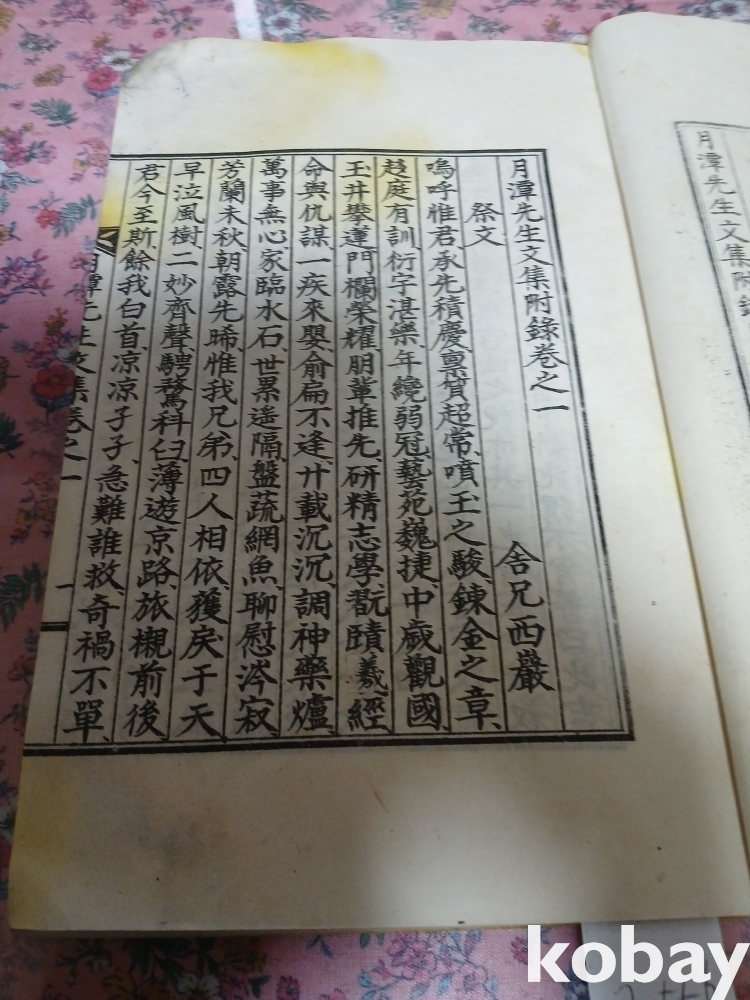 月潭先生文集附錄卷之一
祭文
舍兄西巖
嗚呼惟君承先積慶稟質超常噴玉之駿鍊金之章
趍庭有訓衍宇湛樂年纔弱冠藝苑巍捷中歲觀國
玉井攀蓮門欄榮耀朋輩推先硏精志學翫蹟羲經
命與仇謀一疾來嬰俞扁不逢廾載沉沉調神藥爐
萬事無心家臨水石世累遙隔盤蔬網魚聊慰涔寂
芳蘭未秋朝露先晞惟我兄弟四人相依獲戾于天
早泣風樹二妙齊聲騁騖科臼薄遊京路旅櫬前後
君今至斯餘我白首凉凉孑孑急難誰救奇禍不單
月潭先生文集卷之一
一
月潭先生文集附錄
kobay